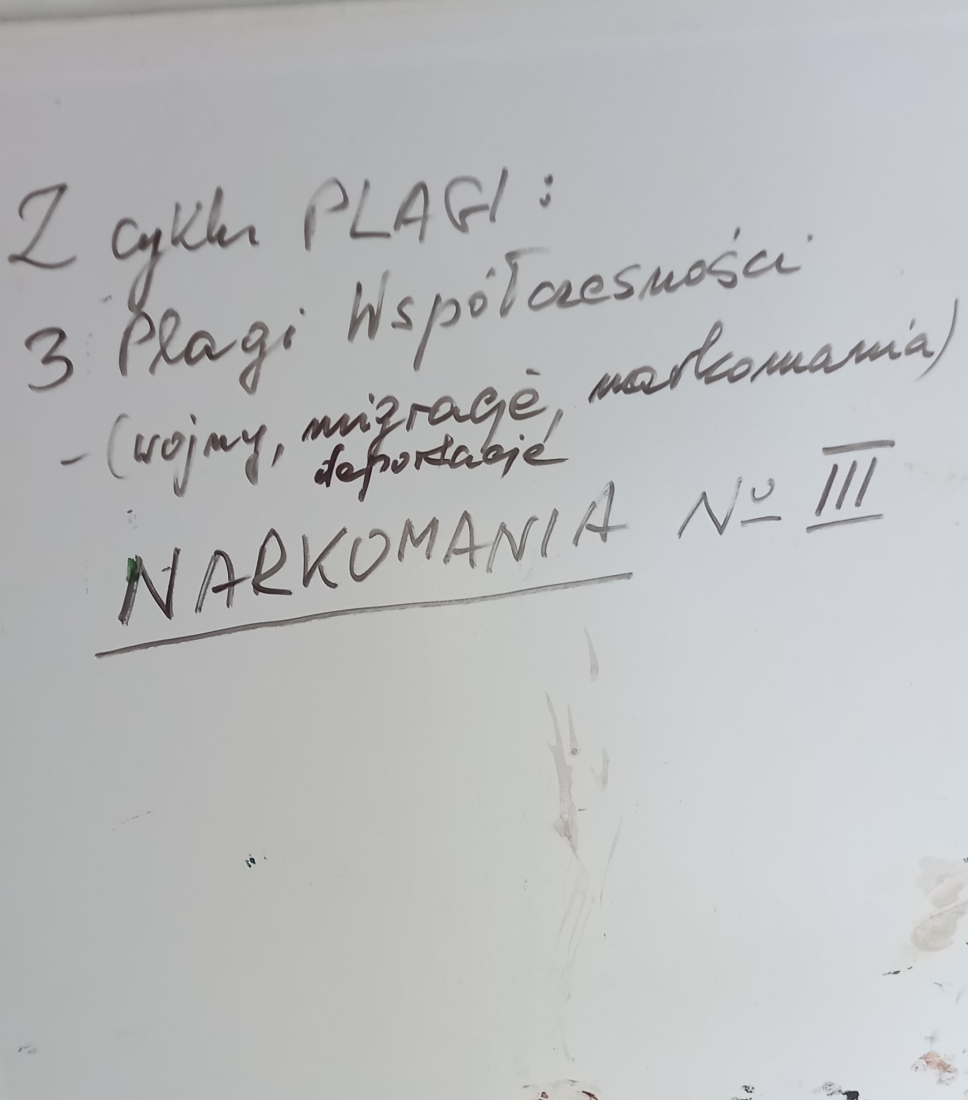 Z cyklu PLAGI:
3 Plagi Współczesności
- (wojny, migracje, narkomania)
deportacje
NARKOMANIA Nº III